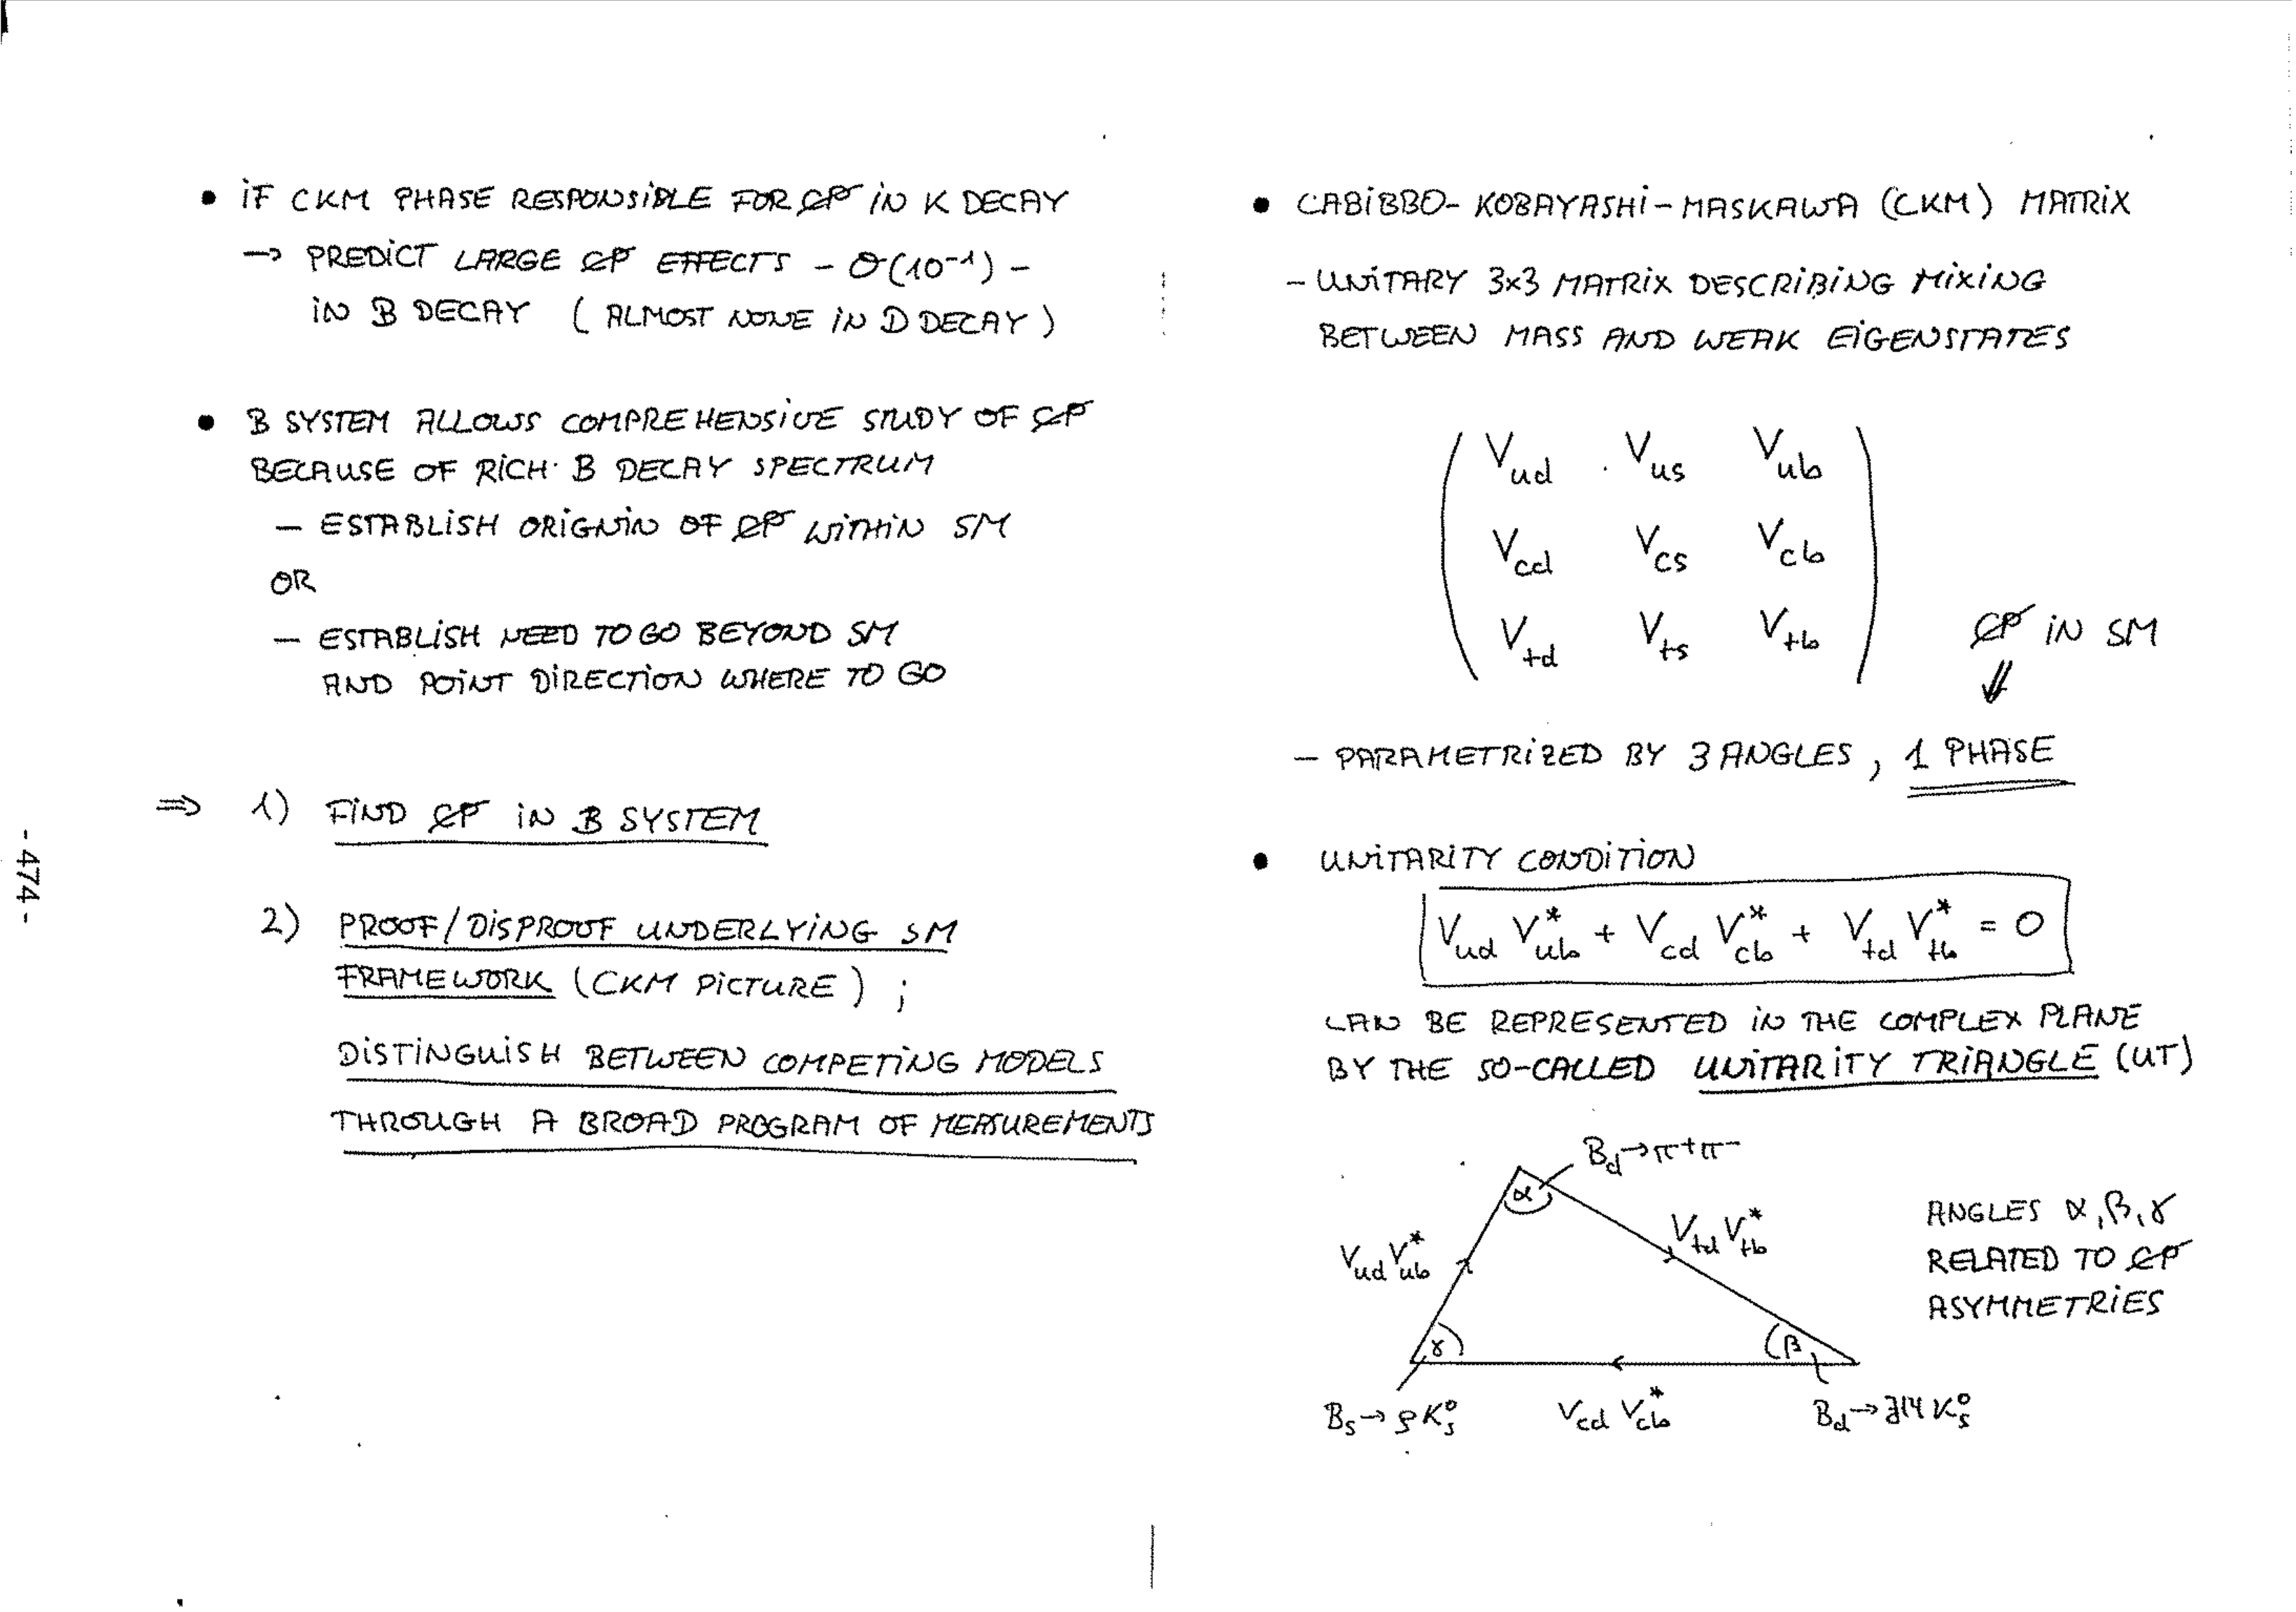 • IF CKM PHASE RESPONSIBLE FOR C̸P̸ IN K DECAY
→ PREDICT LARGE C̸P̸ EFFECTS - O(10⁻¹) -
IN B DECAY ( ALMOST NONE IN D DECAY )
• B SYSTEM ALLOWS COMPREHENSIVE STUDY OF C̸P̸
BECAUSE OF RICH B DECAY SPECTRUM
- ESTABLISH ORIGNIN OF C̸P̸ WITHIN SM
OR
- ESTABLISH NEED TO GO BEYOND SM
AND POINT DIRECTION WHERE TO GO
⇒ 1) FIND C̸P̸ IN B SYSTEM
2) PROOF/DISPROOF UNDERLYING SM
FRAMEWORK (CKM PICTURE) ;
DISTINGUISH BETWEEN COMPETING MODELS
THROUGH A BROAD PROGRAM OF MEASUREMENTS
- 474 -
• CABIBBO-KOBAYASHI-MASKAWA (CKM) MATRIX
- UNITARY 3x3 MATRIX DESCRIBING MIXING
BETWEEN MASS AND WEAK EIGENSTATES
V_ud V_us V_ub
V_cd V_cs V_cb
V_td V_ts V_tb
C̸P̸ IN SM
⇓
- PARAMETRIZED BY 3 ANGLES, 1 PHASE
• UNITARITY CONDITION
V_ud V_ub* + V_cd V_cb* + V_td V_tb* = 0
CAN BE REPRESENTED IN THE COMPLEX PLANE
BY THE SO-CALLED UNITARITY TRIANGLE (UT)
B_d → π⁺π⁻
α
V_ud V_ub*
V_td V_tb*
ANGLES α, β, γ
RELATED TO C̸P̸
ASYMMETRIES
γ
β
B_s → ρ K_s⁰
V_cd V_cb*
B_d → J/ψ K_s⁰